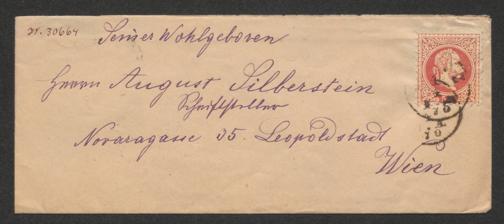 N. 30664
Seiner Wohlgeboren
Herrn August Silberstein
Schriftsteller
Novaragasse 35. Leopoldstadt
Wien